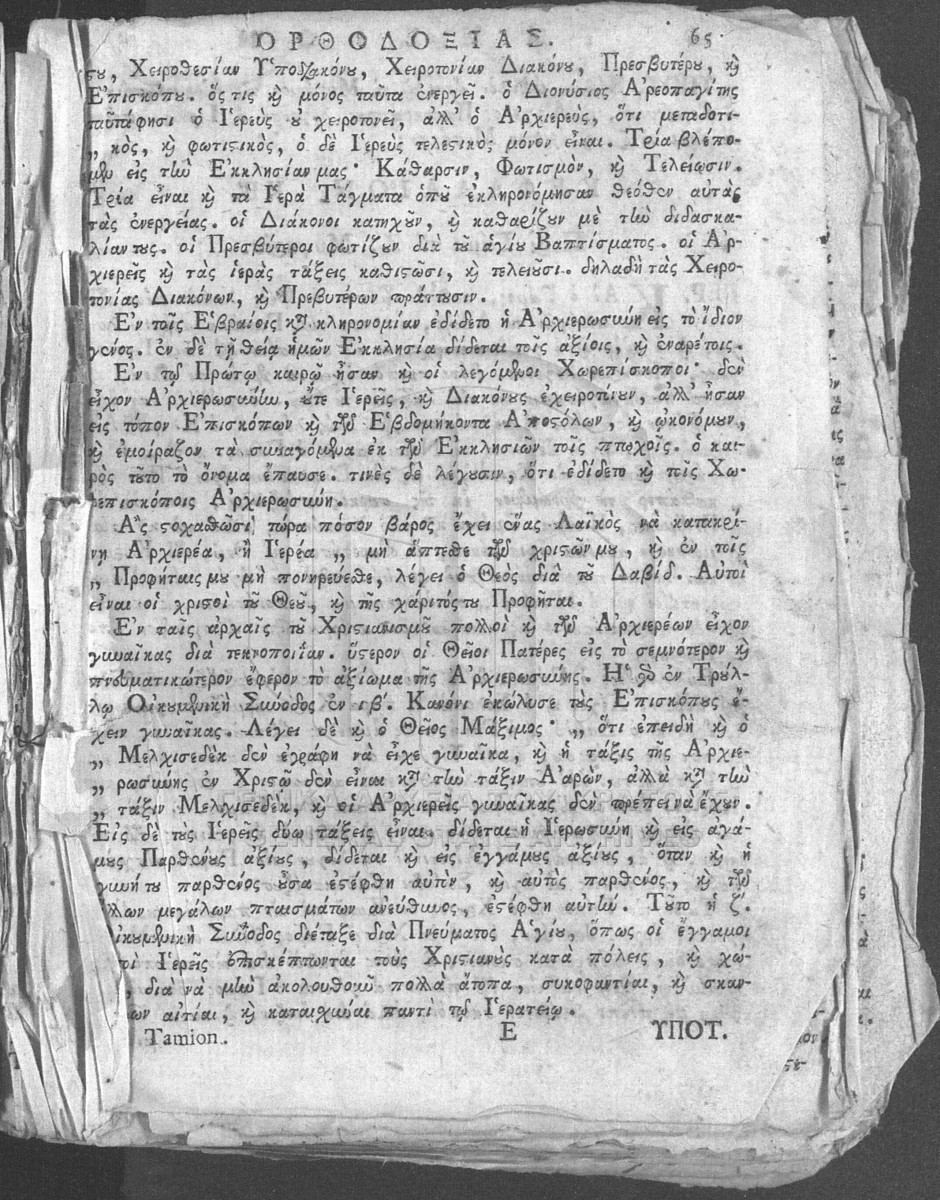 ΟΡΘΟΔΟΞΙΑΣ. 65
ȣ, Χειροθεσίαν Ὑποδιακόνȣ, Χειροτονίαν Διακόνȣ, Πρεσβυτέρȣ, ϗ
Ἐπισκόπȣ. ὅς τις ϗ μόνος ταῦτα ἐνεργεῖ. ὁ Διονύσιος Ἀρεοπαγίτης
ταῦτάφησι ὁ Ἱερεὺς ȣ̓ χειροτονεῖ, ἀλλ' ὁ Ἀρχιερεὺς, ὅτι μεταδοτι-
„ κὸς, ϗ φωτιϛικὸς, ὁ δὲ Ἱερεὺς τελεϛικὸς μόνον εἶναι. Τρία βλέπο-
μεν εἰς τὴν Ἐκκλησίαν μας· Κάθαρσιν, Φωτισμὸν, ϗ Τελείωσιν.
Τρία εἶναι ϗ τὰ Ἱερὰ Τάγματα ὁπȣ̃ ἐκληρονόμησαν θεόθεν αὐτὰς
τὰς ἐνεργείας. οἱ Διάκονοι κατηχȣ̃ν, ϗ καθαρίζȣν μὲ τὴν διδασκα-
λίαν τȣς. οἱ Πρεσβύτεροι φωτίζȣν διὰ τȣ̃ ἁγίȣ Βαπτίσματος. οἱ Ἀρ-
χιερεῖς ϗ τὰς ἱερὰς τάξεις καθιϛῶσι, ϗ τελειȣ̃σι. δηλαδὴ τὰς Χειρο-
τονίας Διακόνων, ϗ Πρεβυτέρων πράττȣσιν.
Ἐν τοῖς Ἑβραίοις κατὰ κληρονομίαν ἐδίδετο ἡ Ἀρχιερωσύνη εἰς τὸ ἴδιον
γένος. ἐν δὲ τῇ θείᾳ ἡμῶν Ἐκκλησίᾳ δίδεται τοῖς ἀξίοις, ϗ ἐναρέτοις.
Ἐν τῷ Πρώτῳ καιρῷ ἦσαν ϗ οἱ λεγόμενοι Χωρεπίσκοποι· δὲν
εἶχον Ἀρχιερωσύνην, ȣ̓́τε Ἱερεῖς, ϗ Διακόνȣς ἐχειροτόνȣν, ἀλλ' ἦσαν
εἰς τόπον Ἐπισκόπων ϗ τῶν Ἑβδομήκοντα Ἀποϛόλων, ϗ ᾠκονόμȣν,
ϗ ἐμοίραζον τὰ συναγόμενα ἐκ τῶν Ἐκκλησιῶν τοῖς πτωχοῖς. ὁ και-
ρὸς τȣ̃το τὸ ὄνομα ἔπαυσε. τινὲς δὲ λέγȣσιν, ὅτι ἐδίδετο ϗ τοῖς Χω-
ρεπισκόποις Ἀρχιερωσύνη.
Ἂς ϛοχασθῶσι τώρα πόσον βάρος ἔχει ἕνας Λαϊκὸς νὰ κατακρί-
νῃ Ἀρχιερέα, ἢ Ἱερέα „ μὴ ἅπτεσθε τῶν χριϛῶν μου, ϗ ἐν τοῖς
„ Προφήταις μου μὴ πονηρεύεσθε, λέγει ὁ Θεὸς διὰ τȣ̃ Δαβίδ. Αὐτοὶ
εἶναι οἱ χριϛοὶ τȣ̃ Θεȣ̃, ϗ τῆς χάριτός τȣ Προφῆται.
Ἐν ταῖς ἀρχαῖς τȣ̃ Χριϛιανισμȣ̃ πολλοὶ ϗ τῶν Ἀρχιερέων εἶχον
γυναῖκας διὰ τεκνοποιΐαν. ὕϛερον οἱ Θεῖοι Πατέρες εἰς τὸ σεμνότερον ϗ
πνευματικώτερον ἔφερον τὸ ἀξίωμα τῆς Ἀρχιερωσύνης. Ἡ γὰρ ἐν Τρȣλ-
λῳ Οἰκουμενικὴ Σύνοδος ἐν ιβʹ. Κανόνι ἐκώλυσε τȣ̀ς Ἐπισκόπȣς ἔ-
χειν γυναῖκας. Λέγει δὲ ϗ ὁ Θεῖος Μάξιμος· „ ὅτι ἐπειδὴ ϗ ὁ
„ Μελχισεδὲκ δὲν ἐγράφη νὰ εἶχε γυναῖκα, ϗ ἡ τάξις τῆς Ἀρχιε-
„ ρωσύνης ἐν Χριϛῷ δὲν εἶναι κατὰ τὴν τάξιν Ἀαρὼν, ἀλλὰ κατὰ τὴν
„ τάξιν Μελχισεδὲκ, ϗ οἱ Ἀρχιερεῖς γυναῖκας δὲν πρέπει νὰ ἔχουν.
Εἰς δὲ τȣ̀ς Ἱερεῖς δύω τάξεις εἶναι. δίδεται ἡ Ἱερωσύνη ϗ εἰς ἀγά-
μȣς Παρθένȣς ἀξίȣς, δίδεται ϗ εἰς ἐγγάμȣς ἀξίȣς, ὅταν ϗ ἡ
γυνή τȣ παρθένος ȣ̓͂σα ἐϛέφθη αὐτὸν, ϗ αὐτὸς παρθένος, ϗ τῶν
λλων μεγάλων πταισμάτων ἀνεύθυνος, ἐϛέφθη αὐτήν. Τȣ̃το ἡ ζʹ.
ἰκουμενικὴ Σύνοδος διέταξε διὰ Πνεύματος Ἁγίȣ, ὅπως οἱ ἔγγαμοι
τοὶ Ἱερεῖς ἐπισκέπτωνται τοὺς Χριϛιανȣ̀ς κατὰ πόλεις, ϗ χώ-
, διὰ νὰ μὴν ἀκολουθοῦν πολλὰ ἄτοπα, συκοφαντίαι, ϗ σκαν-
ων αἰτίαι, ϗ καταισχύναι παντὶ τῷ Ἱερατείῳ.
Tamion. E ΥΠΟΤ.